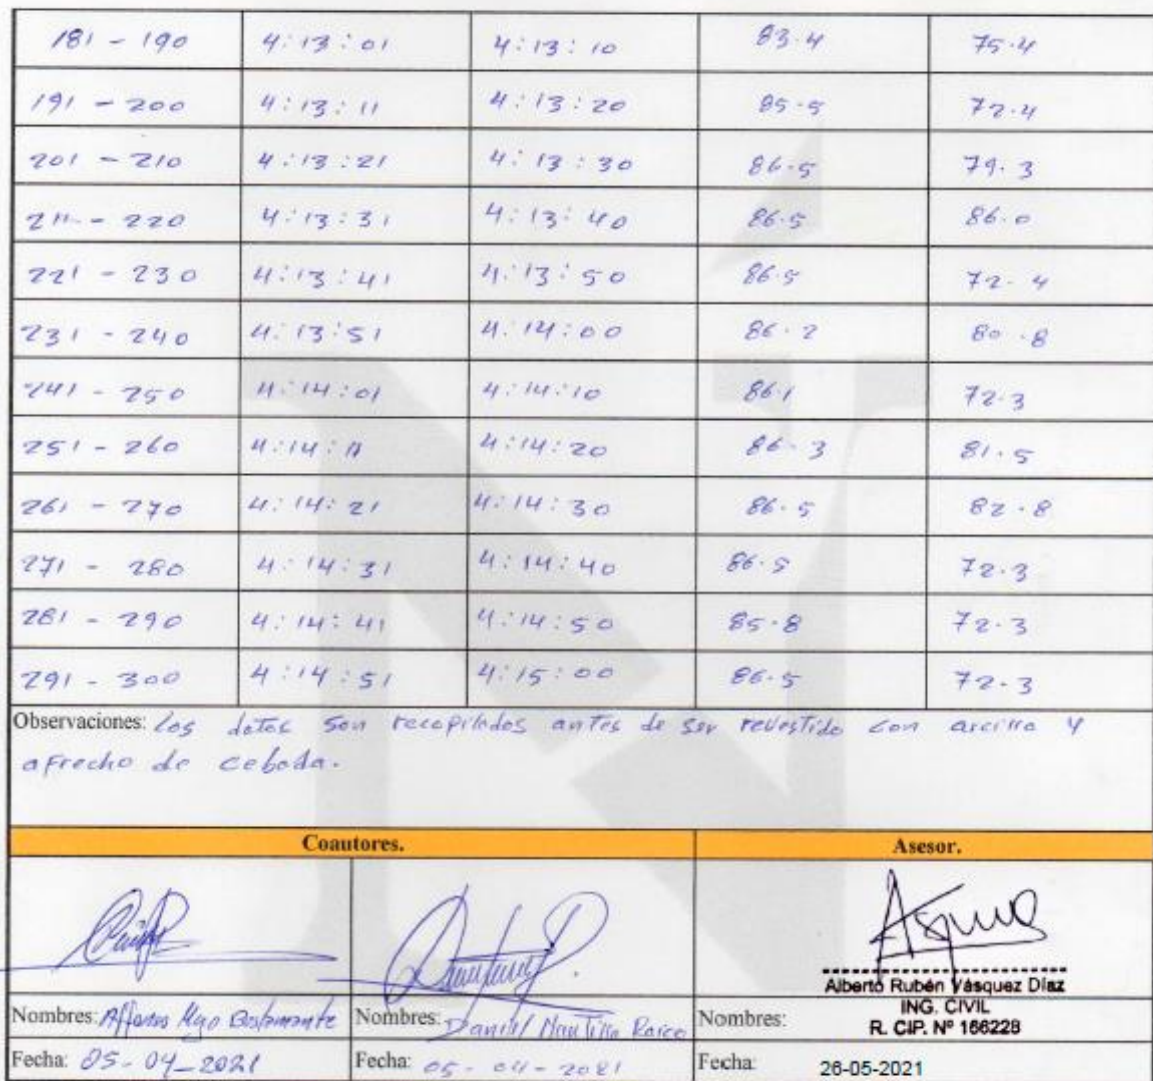 181 - 190 4:13:01 4:13:10 83.4 75.4
191 - 200 4:13:11 4:13:20 85.5 72.4
201 - 210 4:13:21 4:13:30 86.5 79.3
211 - 220 4:13:31 4:13:40 86.5 86.0
221 - 230 4:13:41 4:13:50 86.5 72.4
231 - 240 4:13:51 4:14:00 86.2 80.8
241 - 250 4:14:01 4:14:10 86.1 72.3
251 - 260 4:14:11 4:14:20 86.3 81.5
261 - 270 4:14:21 4:14:30 86.5 82.8
271 - 280 4:14:31 4:14:40 86.5 72.3
281 - 290 4:14:41 4:14:50 85.8 72.3
291 - 300 4:14:51 4:15:00 86.5 72.3
Observaciones: Los datos son recopilados antes de ser revestido con arcilla y
afrecho de cebada.
Coautores. Asesor.
Alberto Rubén Vásquez Díaz
ING. CIVIL
R. CIP. Nº 166228
Nombres: Bustamante Nombres: Daniel Nombres:
Fecha: 05-04-2021 Fecha: 05-04-2021 Fecha: 26-05-2021